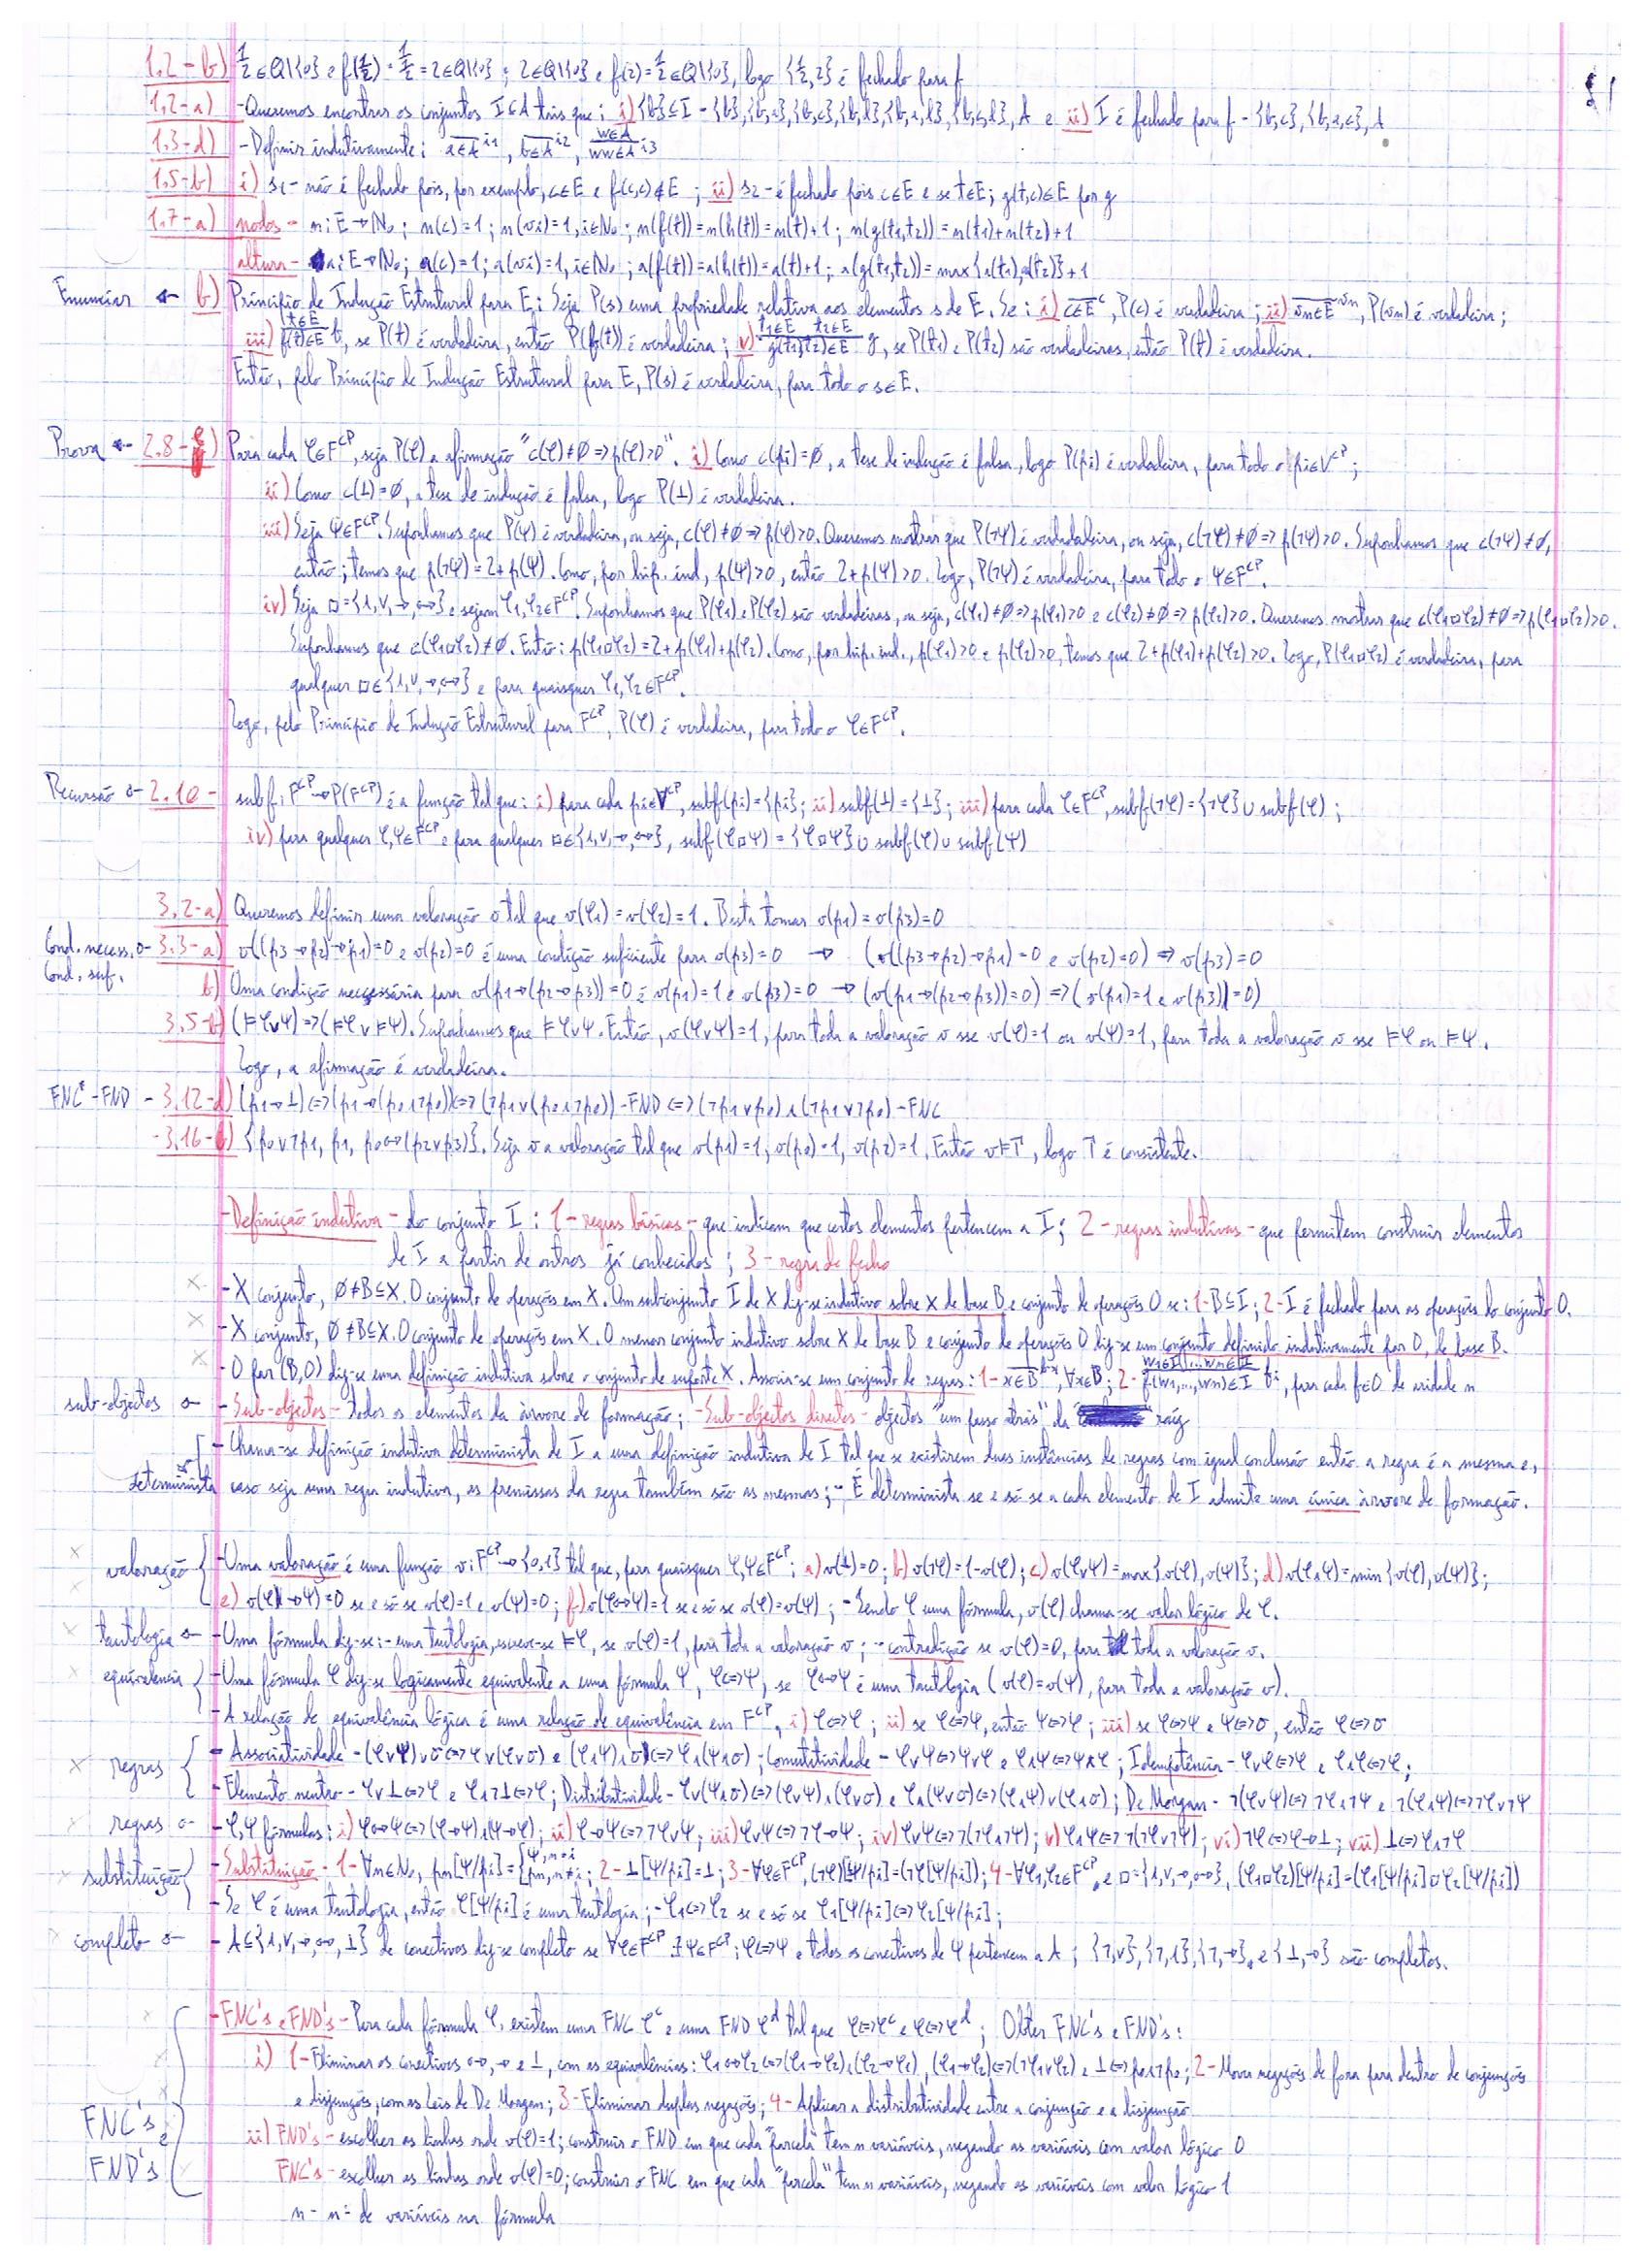 1.2-b) 1/2∈Q\{0} e f(1/2)=1/(1/2)=2∈Q\{0}; 2∈Q\{0} e f(2)=1/2∈Q\{0}, logo {1/2,2} é fechado para f
1.2-a) -Queremos encontrar os conjuntos I⊆A tais que: i) {b}⊆I - {b},{b,a},{b,c},{b,d},{b,a,d},{b,c,d}, A e ii) I é fechado para f - {b,c},{b,a,c}, A
1.3-d) -Definir indutivamente: a∈A i1, b∈A i2, w∈A / ww∈A i3
1.5-b) i) s1 - não é fechado pois, por exemplo, c∈E e f(c,c)∉E ; ii) s2 - é fechado pois c∈E e se t∈E; g(t,c)∈E por g
1.7-a) nodos - n:E→N₀; n(c)=1; n(vi)=1, i∈N₀; n(f(t))=n(h(t))=n(t)+1; n(g(t1,t2))=n(t1)+n(t2)+1
altura - a:E→N₀; a(c)=1; a(vi)=1, i∈N₀; a(f(t))=a(h(t))=a(t)+1; a(g(t1,t2))=max{a(t1),a(t2)}+1
Enunciar ← b) Princípio de Indução Estrutural para E: Seja P(s) uma propriedade relativa aos elementos s de E. Se: i) c∈E c, P(c) é verdadeira; ii) vn∈E vn, P(vn) é verdadeira;
iii) t∈E / f(t)∈E f, se P(t) é verdadeira, então P(f(t)) é verdadeira; v) t1∈E t2∈E / g(t1,t2)∈E g, se P(t1) e P(t2) são verdadeiras, então P(t) é verdadeira.
Então, pelo Princípio de Indução Estrutural para E, P(s) é verdadeira, para todo o s∈E.
Prova ← 2.8-f) Para cada φ∈F^CP, seja P(φ) a afirmação "c(φ)≠∅ => p(φ)>0". i) Como c(pi)=∅, a tese de indução é falsa, logo P(pi) é verdadeira, para todo o pi∈V^CP;
ii) Como c(⊥)=∅, a tese de indução é falsa, logo P(⊥) é verdadeira.
iii) Seja Ψ∈F^CP. Suponhamos que P(Ψ) é verdadeira, ou seja, c(φ)≠∅ => p(φ)>0. Queremos mostrar que P(¬Ψ) é verdadeira, ou seja, c(¬φ)≠∅ => p(¬Ψ)>0. Suponhamos que c(¬Ψ)≠∅,
então; temos que p(¬Ψ)=2+p(Ψ). Como, por hip. ind, p(Ψ)>0, então 2+p(Ψ)>0. Logo, P(¬Ψ) é verdadeira, para todo o Ψ∈F^CP.
iv) Seja □={∧,∨,→,↔} e sejam φ1,φ2∈F^CP. Suponhamos que P(φ1) e P(φ2) são verdadeiras, ou seja, c(φ1)≠∅ => p(φ1)>0 e c(φ2)≠∅ => p(φ2)>0. Queremos mostrar que c(φ1□φ2)≠∅ => p(φ1□φ2)>0.
Suponhamos que c(φ1□φ2)≠∅. Então: p(φ1□φ2)=2+p(φ1)+p(φ2). Como, por hip. ind., p(φ1)>0 e p(φ2)>0, temos que 2+p(φ1)+p(φ2)>0. Logo, P(φ1□φ2) é verdadeira, para
qualquer □∈{∧,∨,→,↔} e para quaisquer φ1,φ2∈F^CP.
Logo, pelo Princípio de Indução Estrutural para F^CP, P(φ) é verdadeira, para todo o φ∈F^CP.
Recursão ← 2.10 - subf: F^CP→P(F^CP) é a função tal que: i) para cada pi∈V^CP, subf(pi)={pi}; ii) subf(⊥)={⊥}; iii) para cada φ∈F^CP, subf(¬φ)={¬φ}∪subf(φ);
iv) para qualquer φ,Ψ∈F^CP e para qualquer □∈{∧,∨,→,↔}, subf(φ□Ψ)={φ□Ψ}∪subf(φ)∪subf(Ψ)
3.2-a) Queremos definir uma valoração v tal que v(φ1)=v(φ2)=1. Basta tomar v(p1)=v(p3)=0
Cond. necess. ← 3.3-a) v((p3→p2)→p1)=0 e v(p2)=0 é uma condição suficiente para v(p3)=0 → (v((p3→p2)→p1)=0 e v(p2)=0) => v(p3)=0
Cond. suf.
b) Uma condição necessária para v(p1→(p2→p3))=0 é v(p1)=1 e v(p3)=0 → (v(p1→(p2→p3))=0) => (v(p1)=1 e v(p3)=0)
3.5-b) (⊨φ∨Ψ) => (⊨φ ∨ ⊨Ψ). Suponhamos que ⊨φ∨Ψ. Então, v(φ∨Ψ)=1, para toda a valoração v sse v(φ)=1 ou v(Ψ)=1, para toda a valoração v sse ⊨φ ou ⊨Ψ.
Logo, a afirmação é verdadeira.
FNC-FND - 3.12-d) (p1→⊥)<=>(p1→(p0∧¬p0))<=>(¬p1∨(p0∧¬p0)) - FND <=> (¬p1∨p0)∧(¬p1∨¬p0) - FNC
-3.16-b) {p0∨¬p1, p1, p0↔(p2∨p3)}. Seja v a valoração tal que v(p1)=1, v(p0)=1, v(p2)=1. Então v⊨Γ, logo Γ é consistente.
-Definição indutiva - do conjunto I: 1 - regras básicas - que indicam que certos elementos pertencem a I; 2 - regras indutivas - que permitem construir elementos
de I a partir de outros já conhecidos; 3 - regra de fecho
- X conjunto, ∅≠B⊆X. O conjunto de operações em X. Um subconjunto I de X diz-se indutivo sobre X de base B e conjunto de operações O se: 1-B⊆I; 2-I é fechado para as operações do conjunto O.
- X conjunto, ∅≠B⊆X. O conjunto de operações em X. O menor conjunto indutivo sobre X de base B e conjunto de operações O diz-se um conjunto definido indutivamente por O, de base B.
- O par (B,O) diz-se uma definição indutiva sobre o conjunto de suporte X. Associa-se um conjunto de regras: 1- x∈B bx, ∀x∈B; 2- w1∈I ... wn∈I / f(w1,...,wn)∈I fi, para cada f∈O de aridade n
sub-objectos ← - Sub-objectos - todos os elementos da árvore de formação; - Sub-objectos directos - objectos "um passo atrás" da raíz
- Chama-se definição indutiva determinista de I a uma definição indutiva de I tal que se existirem duas instâncias de regras com igual conclusão então a regra é a mesma e,
determinista caso seja uma regra indutiva, as premissas da regra também são as mesmas; - É determinista se e só se a cada elemento de I admite uma única árvore de formação.
valoração - Uma valoração é uma função v:F^CP→{0,1} tal que, para quaisquer φ,Ψ∈F^CP: a) v(⊥)=0; b) v(¬φ)=1-v(φ); c) v(φ∨Ψ)=max{v(φ),v(Ψ)}; d) v(φ∧Ψ)=min{v(φ),v(Ψ)};
e) v(φ→Ψ)=0 se e só se v(φ)=1 e v(Ψ)=0; f) v(φ↔Ψ)=1 se e só se v(φ)=v(Ψ); - Sendo φ uma fórmula, v(φ) chama-se valor lógico de φ.
tautologia ← - Uma fórmula diz-se: - uma tautologia, escreve-se ⊨φ, se v(φ)=1, para toda a valoração v; - contradição se v(φ)=0, para toda a valoração v.
equivalência - Uma fórmula φ diz-se logicamente equivalente a uma fórmula Ψ, φ<=>Ψ, se φ↔Ψ é uma tautologia (v(φ)=v(Ψ), para toda a valoração v).
- A relação de equivalência lógica é uma relação de equivalência em F^CP, i) φ<=>φ; ii) se φ<=>Ψ, então Ψ<=>φ; iii) se φ<=>Ψ e Ψ<=>σ, então φ<=>σ
regras - Associatividade - (φ∨Ψ)∨σ<=>φ∨(Ψ∨σ) e (φ∧Ψ)∧σ<=>φ∧(Ψ∧σ); Comutatividade - φ∨Ψ<=>Ψ∨φ e φ∧Ψ<=>Ψ∧φ; Idempotência - φ∨φ<=>φ e φ∧φ<=>φ;
- Elemento neutro - φ∨⊥<=>φ e φ∧¬⊥<=>φ; Distributividade - φ∨(Ψ∧σ)<=>(φ∨Ψ)∧(φ∨σ) e φ∧(Ψ∨σ)<=>(φ∧Ψ)∨(φ∧σ); De Morgan - ¬(φ∨Ψ)<=>¬φ∧¬Ψ e ¬(φ∧Ψ)<=>¬φ∨¬Ψ
regras ← - φ,Ψ fórmulas: i) φ↔Ψ<=>(φ→Ψ)∧(Ψ→φ); ii) φ→Ψ<=>¬φ∨Ψ; iii) φ∨Ψ<=>¬φ→Ψ; iv) φ∨Ψ<=>¬(¬φ∧¬Ψ); v) φ∧Ψ<=>¬(¬φ∨¬Ψ); vi) ¬φ<=>φ→⊥; vii) ⊥<=>φ∧¬φ
substituição - Substituição - 1- ∀n∈N₀, pn[Ψ/pi]={Ψ, n=i; pn, n≠i; 2- ⊥[Ψ/pi]=⊥; 3- ∀φ∈F^CP, (¬φ)[Ψ/pi]=(¬φ[Ψ/pi]); 4- ∀φ1,φ2∈F^CP, e □={∧,∨,→,↔}, (φ1□φ2)[Ψ/pi]=(φ1[Ψ/pi]□φ2[Ψ/pi])
- Se φ é uma tautologia, então φ[Ψ/pi] é uma tautologia; - φ1<=>φ2 se e só se φ1[Ψ/pi]<=>φ2[Ψ/pi];
completo ← - A⊆{∧,∨,→,↔,⊥} de conectivos diz-se completo se ∀φ∈F^CP ∃Ψ∈F^CP: φ<=>Ψ e todos os conectivos de Ψ pertencem a A; {¬,∨},{¬,∧},{¬,→}, e {⊥,→} são completos.
-FNC's e FND's - Para cada fórmula φ, existem uma FNC φ^c e uma FND φ^d tal que φ<=>φ^c e φ<=>φ^d; Obter FNC's e FND's:
i) 1-Eliminar os conectivos ↔,→ e ⊥, com as equivalências: φ1↔φ2<=>(φ1→φ2)∧(φ2→φ1), (φ1→φ2)<=>(¬φ1∨φ2) e ⊥<=>p0∧¬p0; 2-Mover negações de fora para dentro de conjunções
e disjunções, com as Leis de De Morgan; 3-Eliminar duplas negações; 4-Aplicar a distributividade entre a conjunção e a disjunção
FNC's e FND's
ii) FND's - escolher as linhas onde v(φ)=1; construir o FND em que cada "parcela" tem n variáveis, negando as variáveis com valor lógico 0
FNC's - escolher as linhas onde v(φ)=0; construir o FNC em que cada "parcela" tem n variáveis, negando as variáveis com valor lógico 1
n - nº de variáveis na fórmula